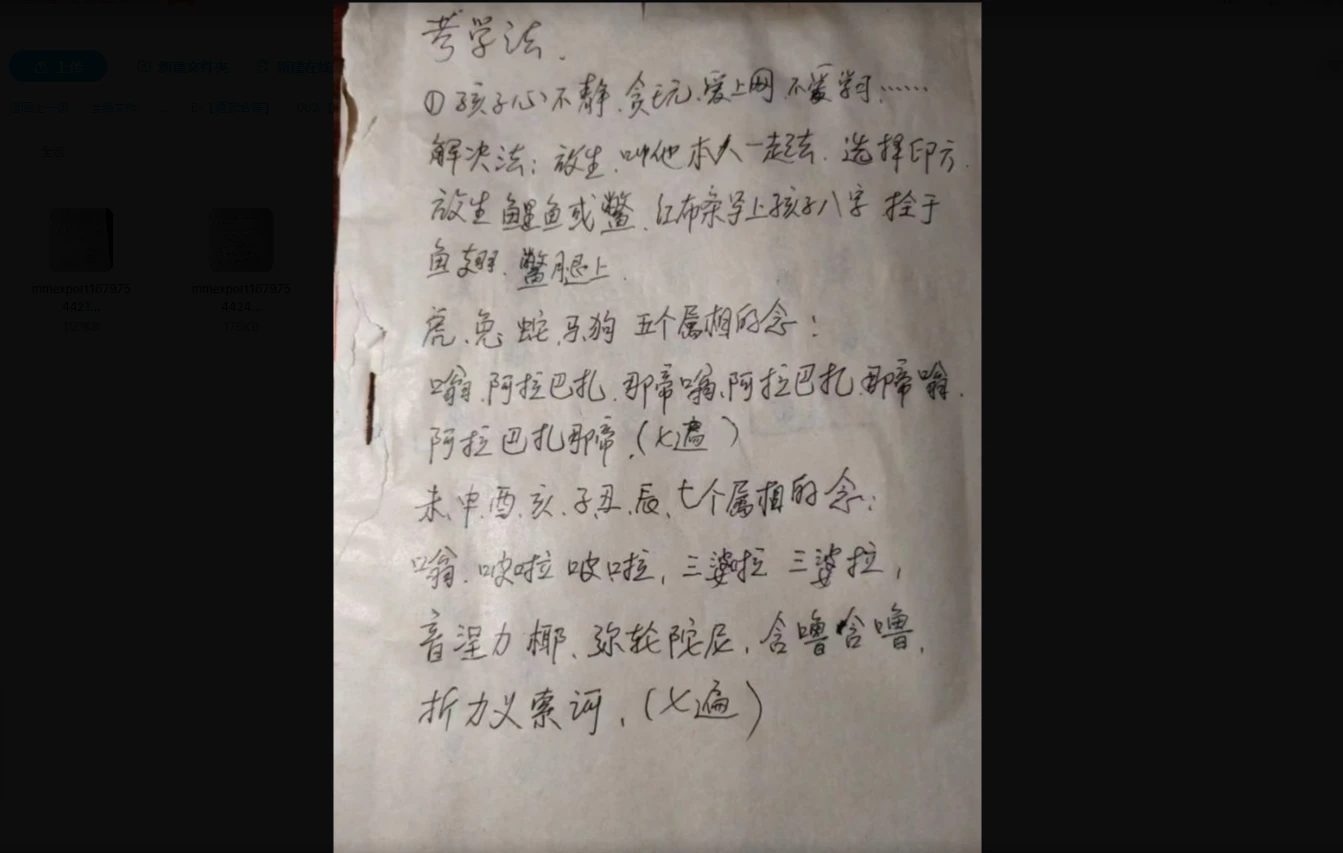 上传
新建文件夹
返回上一页
全部文件
全部
mmexport162975
4423...
mmexport162975
4424...
考学法.
①孩子心不静.贪玩.爱上网.不爱学习.……
解决法:放生.叫他本人一起去.选择印方.
放生鲤鱼或鳖.红布条写上孩子八字 拴于
鱼翅.鳖腿上.
虎、兔、蛇、马、狗 五个属相的念:
嗡.阿拉巴扎.那帝嗡、阿拉巴扎.那帝嗡.
阿拉巴扎那帝.(七遍)
未、申、酉、亥、子、丑、辰、七个属相的念:
嗡.哎啦哎啦,三婆啦 三婆拉,
音涅力椰、弥轮陀尼,含噜含噜,
折力义索诃,(七遍)